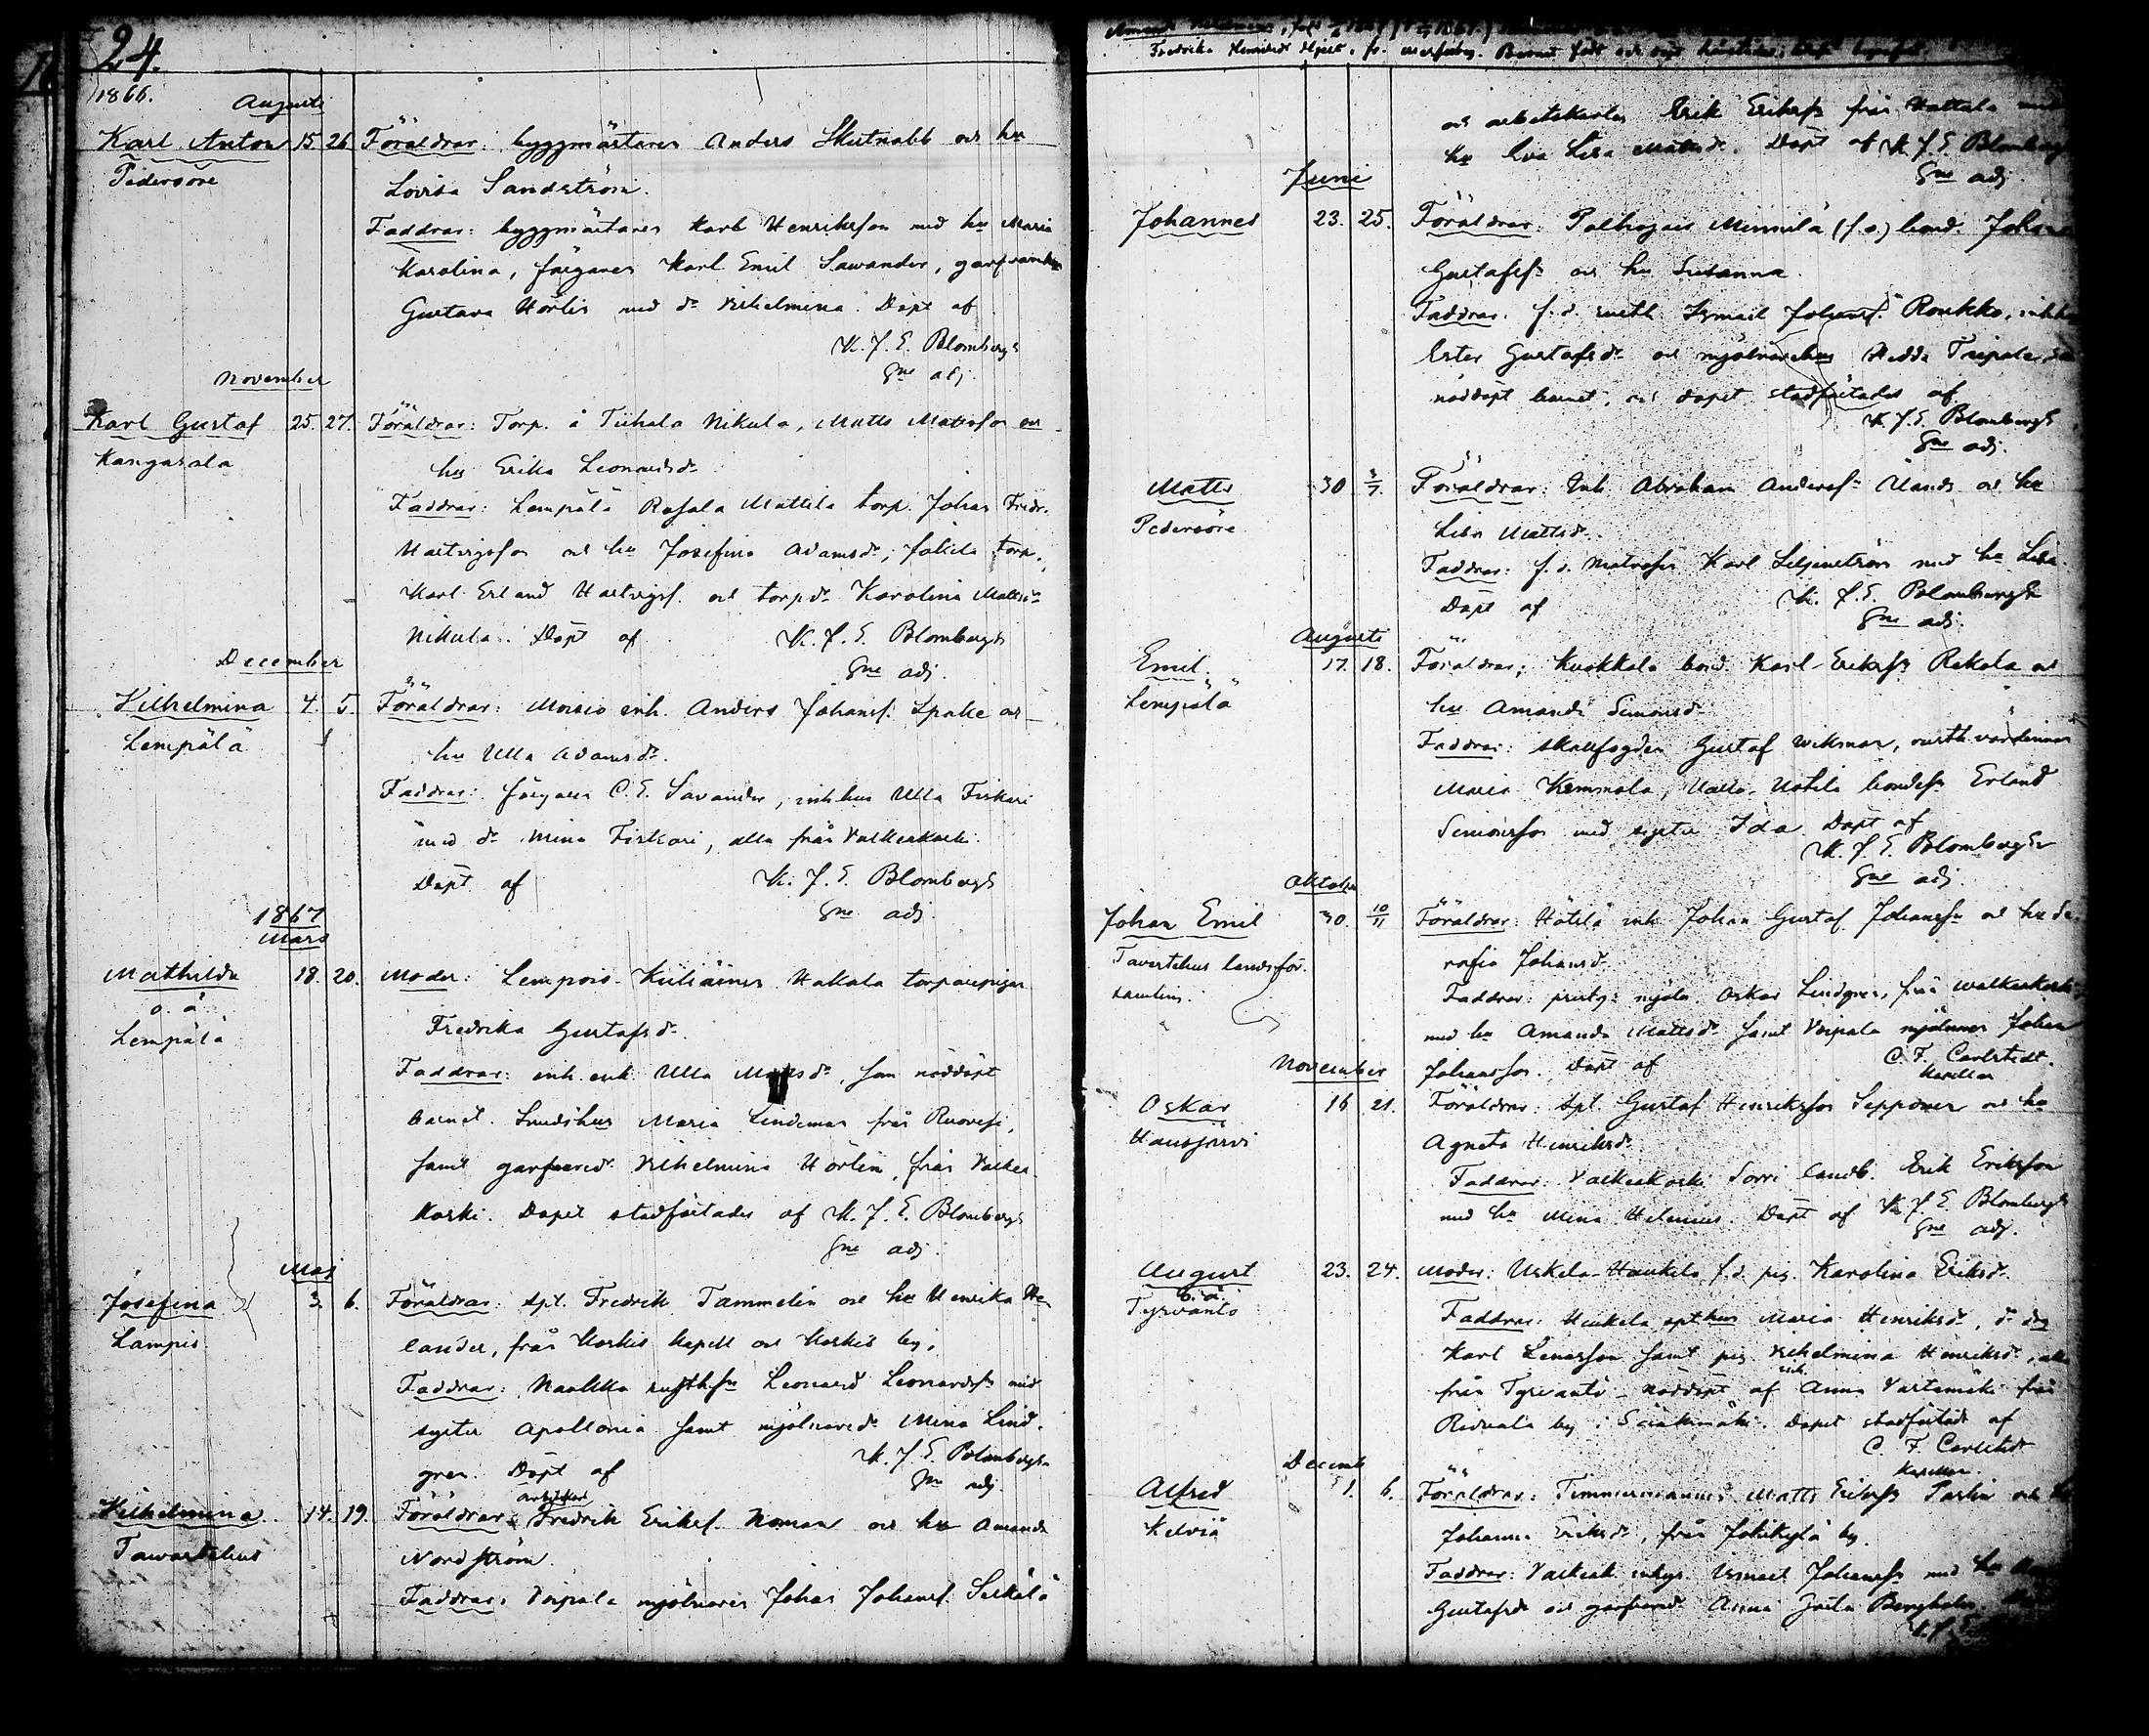 24.
1866.
Augusti
Karl Anton 15 26 Föräldrar: byggmästaren Anders Skutnabb och hu
Pedersöre
Lovisa Sandström.
Faddrar: byggmästaren Karl Henriksson med hu Maria
Karolina, färgaren Karl Emil Sawander,
Gustava Hörlin med dr Vilhelmina. Döpt af
K. J. E. Blombergh
Gne adj.
November
Karl Gustaf 25. 27. Föräldrar: Torp. å Tiihala Nikula, Matts Mattsson och
Kangasala
hu Erika Leonardsdr
Faddrar: Lempälä Rajala Mattila torp. Johan Fredr.
Hartvigsson och hu Josefina Adamsdr; Jakila torp.
Karl Erland Hartvigss. och torpdr Karolina Mattsdr
Nikula. Döpt af K. J. E. Blombergh
Gne adj.
December
Vilhelmina 4. 5. Föräldrar: Moisio inh. Anders Johanss. och
Lempälä
hu Ulla Adamsdr.
Faddrar: färgaren C. E. Savander, inh.hus Ulla Fiskari
med dr Mina Fiskari, alla från Valkeakoski.
Döpt af K. J. E. Blombergh
Gne adj.
1867
Mars
Mathilda 18. 20. Moder: Lempois-Kuliainen Hakala torparepigan
o. ä.
Lempälä
Fredrika Gustafsdr
Faddrar: inh. enk. Ulla Mattsdr, som nöddöpt
barnet. Smidshus Maria Lindeman från Ruovesi,
samt Vilhelmina Hörlin, från Valkea-
koski. Dopet stadfästades af K. J. E. Blombergh
Gne adj.
Maj
Josefina 3. 6. Föräldrar: spl. Fredrik Tammelin och hu Henrika He-
Lampis.
lander, från Korkis kapell och Korkis by.
Faddrar: Naakka rusthsn Leonard Leonardsson med
syster Apollonia samt mjölnaredr Mina Lind-
gren. Döpt af K. J. E. Blombergh
Gne adj.
Vilhelmina 14. 19. Föräldrar: Fredrik Erikss. Noman och hu Amanda
Tawastehus
Nordström.
Faddrar: Voipala mjölnaren Johan Johanss. Serkälä
Fredrika Henriksdr
och arbetskarlen Erik Eriksson från Hattala med
hu Eva Lisa Mattsdr. Döpt af K. J. E. Blombergh
Gne adj.
Juni
Johannes 23. 25. Föräldrar: Palhojais Minnilä (f. d.) bond. Johan
Gustafsson och hu Susanna.
Faddrar: f. d. rusth. Ismael Johanss. Roukko,
Ester Gustafsdr och mjölnarehus Hedda Tripala, som
nöddöpt barnet, och dopet stadfästades af
K. J. E. Blombergh
Gne adj.
Matts 30 3/7. Föräldrar: Inh. Abraham Andersson Ålands och hu
Pedersöre
Lisa Mattsdr.
Faddrar: f. d. Matrosen Karl Liljeström med hu Lisa.
Döpt af K. J. E. Blombergh
Gne adj.
Augusti
Emil 17. 18. Föräldrar: Kuokkala bond. Karl Eriksson Rekola och
Lempäälä
hu Amanda Simonsdr
Faddrar: skallfogden Gustaf Wikman, rusth. värdinnan
Maria Kemmola, Uotila bondesn Erland
Simonsson med syster Ida. Döpt af
K. J. E. Blombergh
Gne adj.
Oktober
Johan Emil 30. 10/11 Föräldrar: Hötilä inh. Johan Gustaf Johansson och hu Se-
Tavastehus landsför-
samling.
rafia Johansdr
Faddrar: Oskar Lindgren, från Walkeakoski
med hu Amanda Mattsdr samt Voipala mjölnaren Johan
Johansson. Döpt af C. F. Carlstedt.
Kapellan
November
Oskar 16 21. Föräldrar: spl. Gustaf Henriksson Sepponen och hu
Hausjärvi
Agneta Henriksdr
Faddrar: Valkeakoski Sorri landb. Erik Eriksson
med hu Mina Helenius. Döpt af K. J. E. Blombergh
Gne adj.
August 23. 24. Moder: Uskela-Haukila f. d. pig. Karolina Eriksdr.
o. ä.
Tyrväntö
Faddrar: Maria Henriksdr, dr drg
Karl Lenasson samt pig. Vilhelmina Henriksdr, alla
från Tyrväntö. Nöddöpt af enk. Anna Vartemäki från
Ridvala by i Sääksmäki. Dopet stadfästadt af
C. F. Carlstedt
Kapellan.
Decemb
Alfred 1. 6. Föräldrar: Timmermannen Matts Eriksson Parlin och hu
Kelviä
Johanna Eriksdr, från Jokikylä by.
Faddrar: Valkeak. inhys. Ismael Johansson med hu
Gustafsdr och Anna Bergholm.